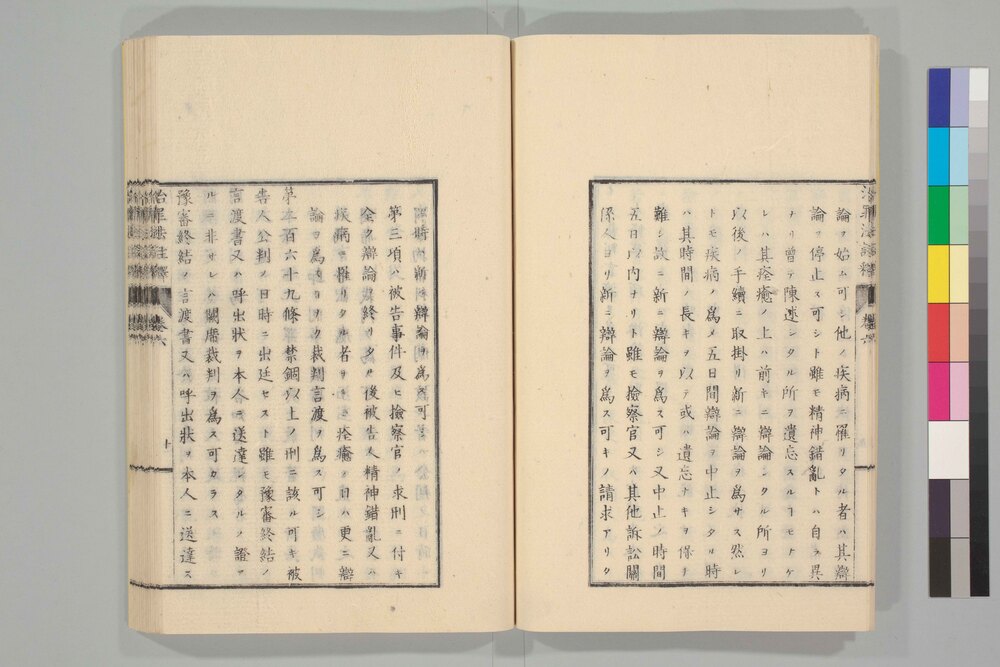 論ヲ始ム可シ他ノ疾病ニ罹リタル者ハ其辯
論ヲ停止ス可シト雖モ精神錯亂トハ自ラ異
ナリ曾テ陳述シタル所ヲ遺忘スルコモナケ
レハ其痊癒ノ上ハ前キニ辯論シタル所ヨリ
以後ノ手續ニ取掛リ新ニ辯論ヲ爲サス然レ
トモ疾病ノ爲メ五日間辯論ヲ中止シタル時
ハ其時間ノ長キヲ以テ或ハ遺忘ナキヲ保チ
難シ故ニ新ニ辯論ヲ爲ス可シ又中止ノ時間
五日以内ナリト雖モ撿察官又ハ其他訴訟關
係人ヨリ新ニ辯論ヲ爲ス可キノ請求アリタ
時ハ新ニ辯論ヲ爲ス可
第三項ハ被告事件及ヒ撿察官ノ求刑ニ付キ
全ク辯論ノ終リタル後被告人精神錯亂又ハ
疾病ニ罹リタル者ナ 痊癒ノ日ハ更ニ辯
論ヲ爲 裁判言渡ヲ爲ス可シ
第二百六十九條禁錮以上ノ刑ニ該ル可キ被
告人公判ノ日時ニ出廷セスト雖モ豫審終結ノ
言渡書又ハ呼出狀ヲ本人ニ送達シタルノ證ア
ルニ非サレハ闕席裁判ヲ爲ス可カラス
豫審終結ノ言渡書又ハ呼出狀ヲ本人ニ送達ス
治罪法註釋 卷六 十